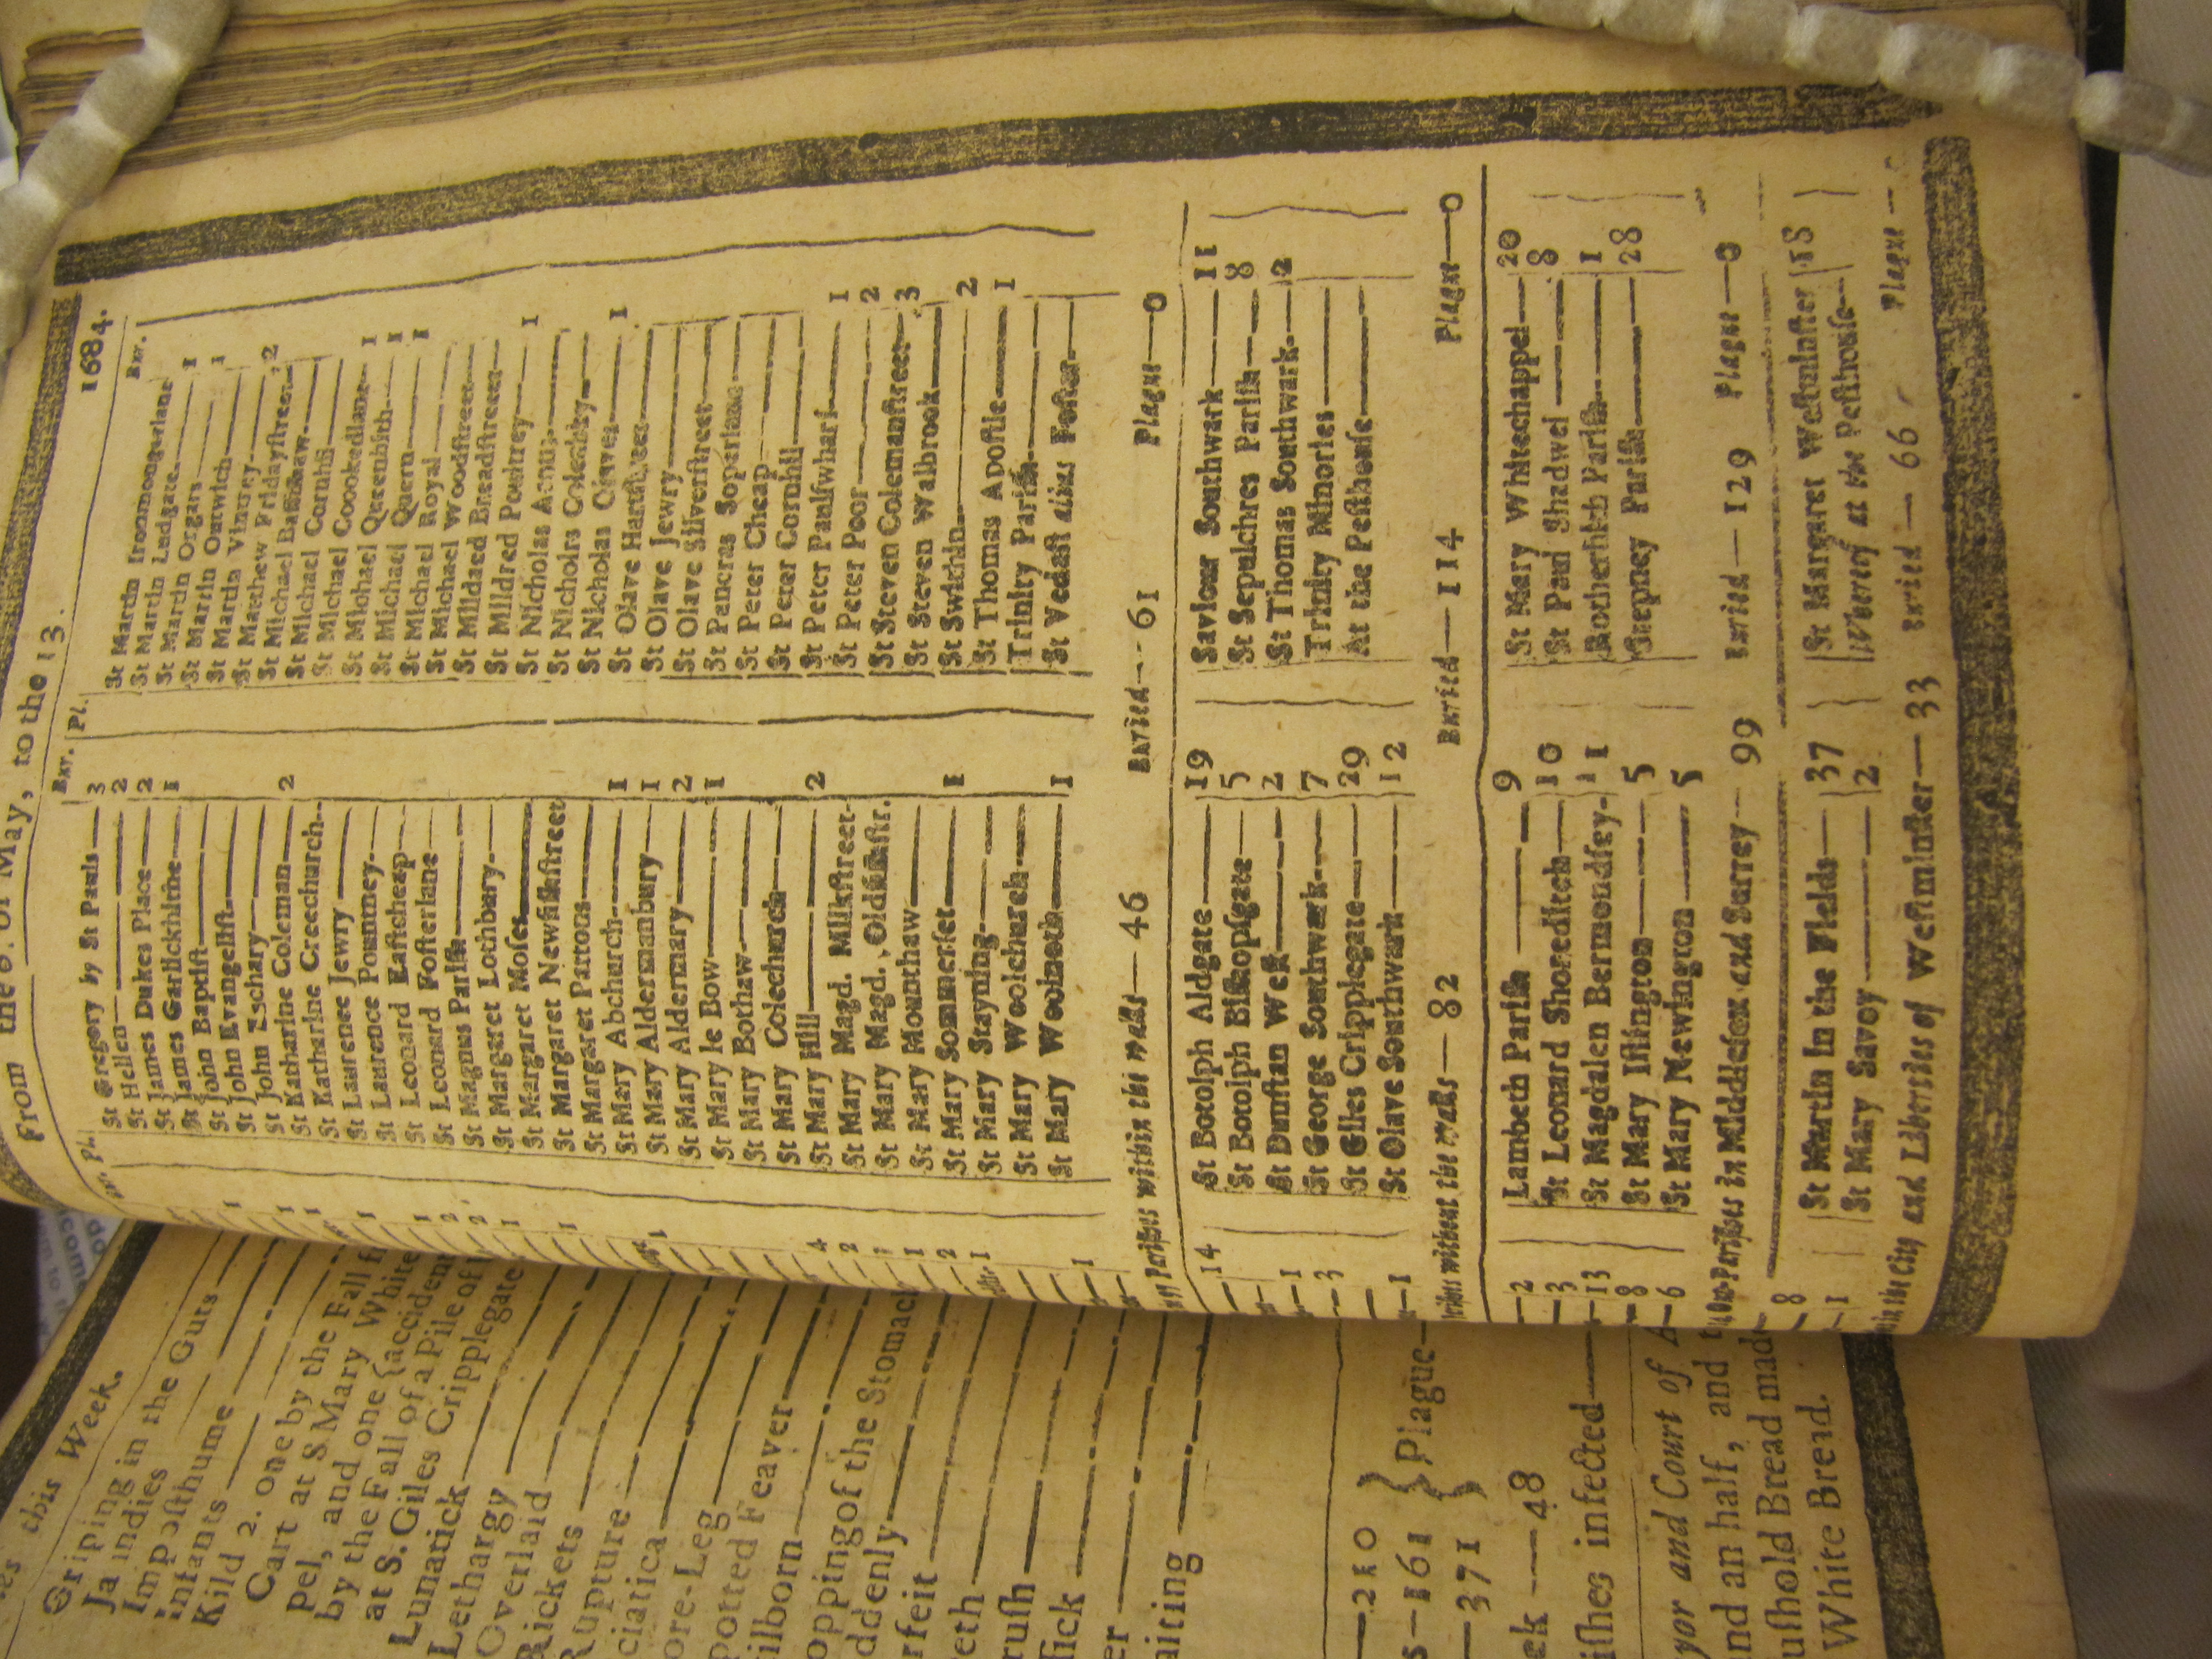 From the 6. of May, to the 13. 1684.
Bur. Pl.
St Gregory by St Pauls — 3
St Hellen — 2
St James Dukes Place — 2
St James Garlickhithe — 1
St John Baptist —
St John Evangelist —
St John Zachary —
St Katharine Coleman — 2
St Katharine Creechurch —
St Laurence Jewry —
St Laurence Pountney —
St Leonard Eastcheap —
St Leonard Fosterlane —
St Magnus Parish —
St Margaret Lothbury —
St Margaret Moses —
St Margaret Newfishstreet
St Margaret Pattons —
St Mary Abchurch — 1
St Mary Aldermanbury — 1
St Mary Aldermary — 2
St Mary le Bow — 1
St Mary Bothaw —
St Mary Colechurch —
St Mary Hill — 2
St Mary Magd. Milkstreet —
St Mary Magd. Oldfishstr.
St Mary Mounthaw —
St Mary Sommerset — 1
St Mary Stayning —
St Mary Woolchurch —
St Mary Woolnoth — 1
Bur.
St Martin Iroomongerlane
St Martin Ludgate — 1
St Martin Orgars —
St Martin Outwich — 1
St Martin Vintrey —
St Matthew Fridaystreet — 2
St Michael Bassishaw —
St Michael Cornhil —
St Michael Coookedlane —
St Michael Queenhith — 1
St Michael Quern — 1
St Michael Royal — 1
St Michael Woodstreet —
St Mildred Breadstreet —
St Mildred Poultrey —
St Nicholas Acons — 1
St Nichols Coleabby —
St Nicholas Olaves —
St Olave Hartstreet — 1
St Olave Jewry —
St Olave Silverstreet —
St Pancras Soperlane —
St Peter Cheap —
St Peter Cornhil —
St Peter Paulswharf — 1
St Peter Poor — 2
St Steven Colemanstreet — 3
St Steven Walbrook —
St Swithin — 2
St Thomas Apostle — 1
Trinity Parish —
St Vedast alias Foster —
Parishes within the walls — 46 Buried — 61 Plague — 0
14
1
3
1
St Botolph Aldgate — 19
St Botolph Bishopsgate — 5
St Dunstan West — 2
St George Southwark — 7
St Giles Cripplegate — 29
St Olave Southwark — 12
Saviour Southwark — 11
St Sepulchres Parish — 8
St Thomas Southwark — 2
Trinity Minories —
At the Pesthouse —
without the walls — 82 Buried — 114 Plague — 0
2
3
13
8
6
Lambeth Parish — 9
St Leonard Shoreditch — 10
St Magdalen Bermondsey — 11
St Mary Islington — 5
St Mary Newington — 5
St Mary Whitechappel — 20
St Paul Shadwel — 8
Rotherhith Parish — 1
Stepney Parish — 28
Out-Parishes in Middlesex and Surrey — 99 Buried — 129 Plague — 0
8
1
St Martin in the Fields — 37
St Mary Savoy — 2
St Margaret Westminster 18
Whereof at the Pesthouse —
in the City and Liberties of Westminster — 33 Buried — 66 Plague —
this Week.
Griping in the Guts —
Jaundies
Imposthume
Infants
Kild 2. one by the Fall
Cart at S Mary White
pel, and one {accident
by the Fall of a Pile of
at S. Giles Cripplegate
Lunatick —
Lethargy
Overlaid
Rickets
Rupture
ciatica
ore-Leg
potted Feaver
ilborn
opping of the Stomach
ddenly
rfeit
eth
rush
sick
er
aiting
— 210
s — 161 } Plague —
— 371
ek — 48
ishes infected —
yor and Court of A
and an half, and
ushold Bread made
White Bread.